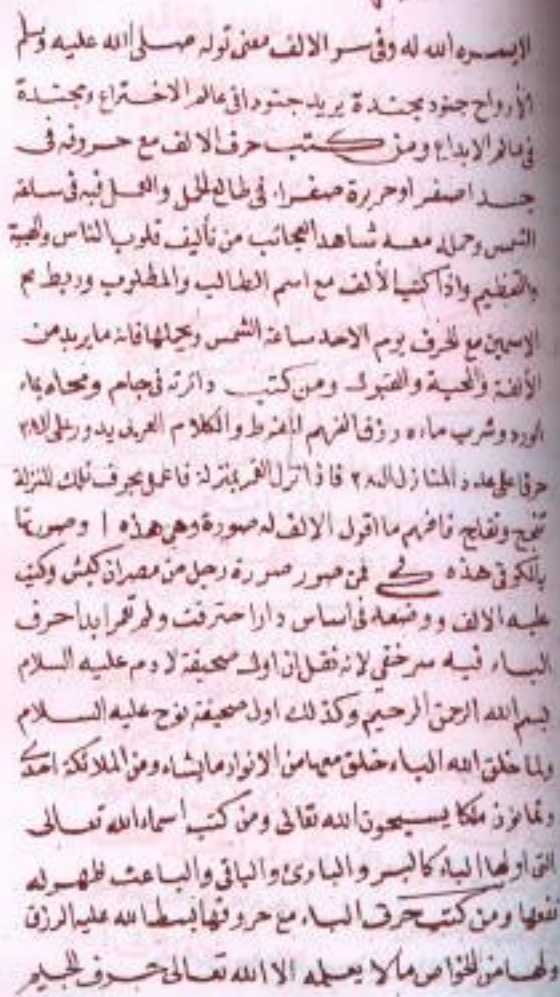 الايسره الله له وفى سر الالف معنى قوله صلى الله عليه وسلم
الأرواح جنود مجندة يريد جنودا فى عالم الاختراع ومجندة
فى عالم الابداع ومن كتب حرف الالف مع حروفه فى
جسد اصفر او حريرة صفراء فى طالع الحمل والحمل فيه فى ساعة
الشمس وحمله معه شاهد العجائب من تأليف قلوب الناس والهيبة
والتعظيم واذا كتب الألف مع اسم الطالب والمطلوب وربط بهم
الاسمين مع الحرف يوم الاحد ساعة الشمس ويحملها فانه ما يريد من
الألفة والمحبة والقبول ومن كتب دائرته فى جام ومحاه بماء
الورد وشرب ماءه رزق الفهم المفرط والكلام العربى يدور على ال٢٨
حرفا على عدد المنازل ال٢٨ فاذا نزل القمر بمنزلة فاعمل بحرف تلك المنزلة
تنجح وتفلح فافهم ما اقول الالف له صورة وهى هذه ا وصورتها
بالكوفى هذه فمن صور صورة رجل من مصران كبش وكتب
عليه الالف ووضعه فى اساس دار احترقت ولم تعمر ابدا حرف
الباء فيه سر خفى لانه فضل ان اول صحيفة لادم عليه السلام
بسم الله الرحمن الرحيم وكذلك اول صحيفة نوح عليه السلام
ولما خلق الله الباء خلق معها من الانوار ما يشاء ومن الملائكة احدى
وثمانون ملكا يسبحون الله تعالى ومن كتب اسماء الله تعالى
التى اولها الباء كالبر والبارئ والباقى والباعث ظهر له
نفعها ومن كتب حرف الباء مع حروفها بسط الله عليه الرزق
ولها من الخواص ما لا يعلمه الا الله تعالى حرف الجيم